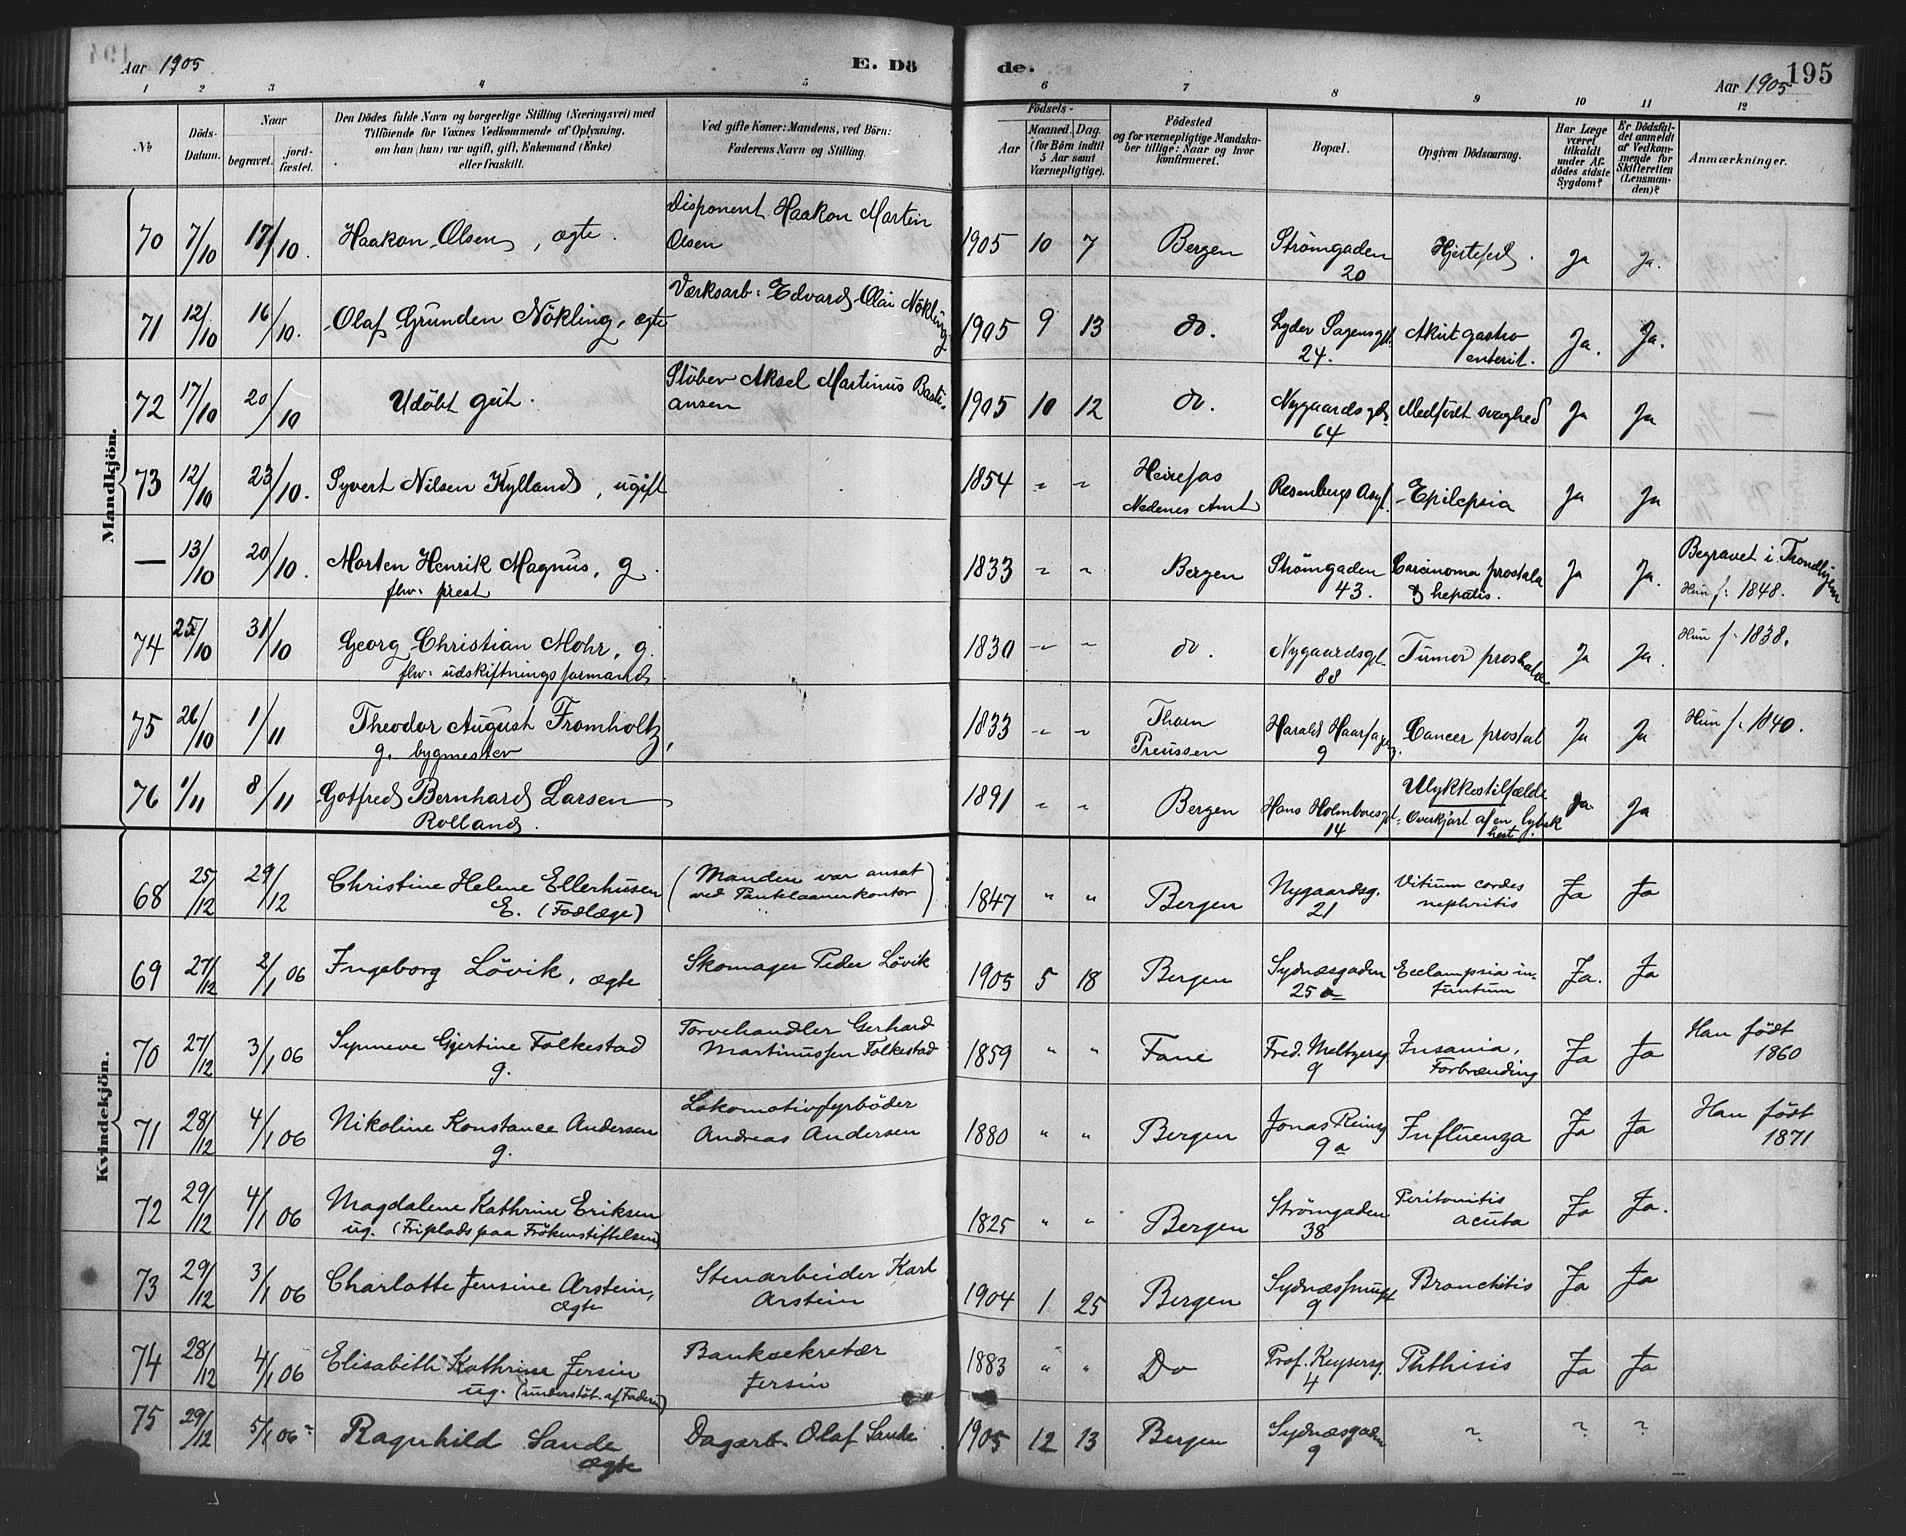 Aar 1905
E. Dö
de.
Aar 1905
195
1 2 3 4 5 6 7 8 9 10 11 12
No
Döds-
Datum.
Naar
begravet.
jord-
fæstet.
Den Dödes fulde Navn og borgerlige Stilling (Næringsvei) med
Tilföiende for Voxnes Vedkommende af Oplysning,
om han (hun) var ugift, gift, Enkemand (Enke)
eller fraskilt.
Ved gifte Koner: Mandens, ved Börn:
Faderens Navn og Stilling.
Födsels-
Aar
Maaned. Dag.
(for Börn indtil
5 Aar samt
Værnepligtige).
Födested
og for værnepligtige Mandska-
ber tillige: Naar og hvor
konfirmeret.
Bopæl.
Opgiven Dödsaarsag.
Har Læge
været
tilkaldt
under Af-
dödes sidste
Sygdom?
Er Dödsfal-
det anmeldt
af Vedkom-
mende for
Skifteretten
(Lensman-
den)?
Anmærkninger.
Mandkjön.
70 7/10 17/10. Haakon Olsen, ægte. Disponent Haakon Martin
Olsen 1905 10 7 Bergen Strömgaden
20 Hjertefeil. Ja Ja.
71 12/10 16/10. Olaf Grunden Nökling, ægte Værksarb: Edvard Olai Nökling 1905 9 13 do. Lyder Sagensgt.
24. Akut gastro
enterit. Ja. Ja.
72 17/10 20/10 Udöbt gut. Stöber Aksel Martinus Basti-
ansen 1905 10 12 do. Nygaardsgt.
64 Medfödt svaghed Ja Ja —
73 12/10 23/10. Syvert Nilsen Kylland, ugift 1854 " " Heirefos
Nedenes Amt Rosenbergs Asyl. Epilepsia Ja Ja
— 13/10 20/10. Morten Henrik Magnus, g.
fhv: prest 1833 " " Bergen Strömgaden
43. Carcinoma prostata
& hepatis. Ja Ja. Begravet i Trondhjem
Hun f: 1848.
74 25/10 31/10 Georg Christian Mohr, g.
fhv: udskiftningsformand. 1830 " " do. Nygaardsgt.
88 Tumor prostatæ Ja Ja. Hun f: 1838.
75 26/10 1/11 Theodor August Fromholtz,
g. bygmester 1833 " " Thorn
Preussen Harald Haarfagrg.
9 Cancer prostat Ja Ja Hun f: 1840.
76 1/11 8/11 Gotfred Bernhard Larsen
Rolland. 1891 " " Bergen Hans Holmboesgt.
14 Ulykkestilfælde
Overkjört af en lybsk
hest Ja. Ja
Kvindekjön.
68 25/12 29/12 Christine Helene Ellerhusen
E. (Fodlæge) (Manden var ansat
ved Pantelaanerkontor) 1847 " " Bergen Nygaardsg.
21 Vitium cordes
nephritis Ja Ja
69 27/12 2/1 06 Ingeborg Lövik, ægte Skomager Peder Lövik 1905 5 18 Bergen Sydnæsgaden
25 a Ecclampsia in-
funtum Ja. Ja
70 27/12 3/1 06 Synneve Gjertine Folkestad
g. Torvehandler Gerhard
Martinussen Folkestad 1859 " " Fane Fred. Meltzersg
9 Insania,
Forbrænding Ja Ja Han födt
1860
71 28/12 4/1 06 Nikoline Konstance Andersen
g. Lokomotivfyrböder
Andreas Andersen 1880 " " Bergen Jonas Reinsg
9 a Influenza Ja Ja Han födt
1871
72 29/12 4/1 06 Magdalene Kathrine Eriksen
ug. (Friplads paa Frökenstiftelsen) 1825 " " Bergen Strömgaden
38 Peritonitis
acuta Ja Ja.
73 29/12 3/1 06 Charlotte Jensine Arstein,
ægte Stenarbeider Karl
Arstein 1904 1 25 Bergen Sydnæssmuget
9 Bronchitis Ja Ja
74 28/12 4/1 06 Elisabeth Kathrine Jersin
ug. (understöt. af Faderen) Banksekretær
Jersin 1883 " " Do Prof. Keysersg.
4 Phthisis Ja Ja
75 29/12 5/1 06 Ragnhild Sande
ægte Dagarb. Olaf Sande 1905 12 13 Bergen Sydnæsgaden
9 ? ? ?